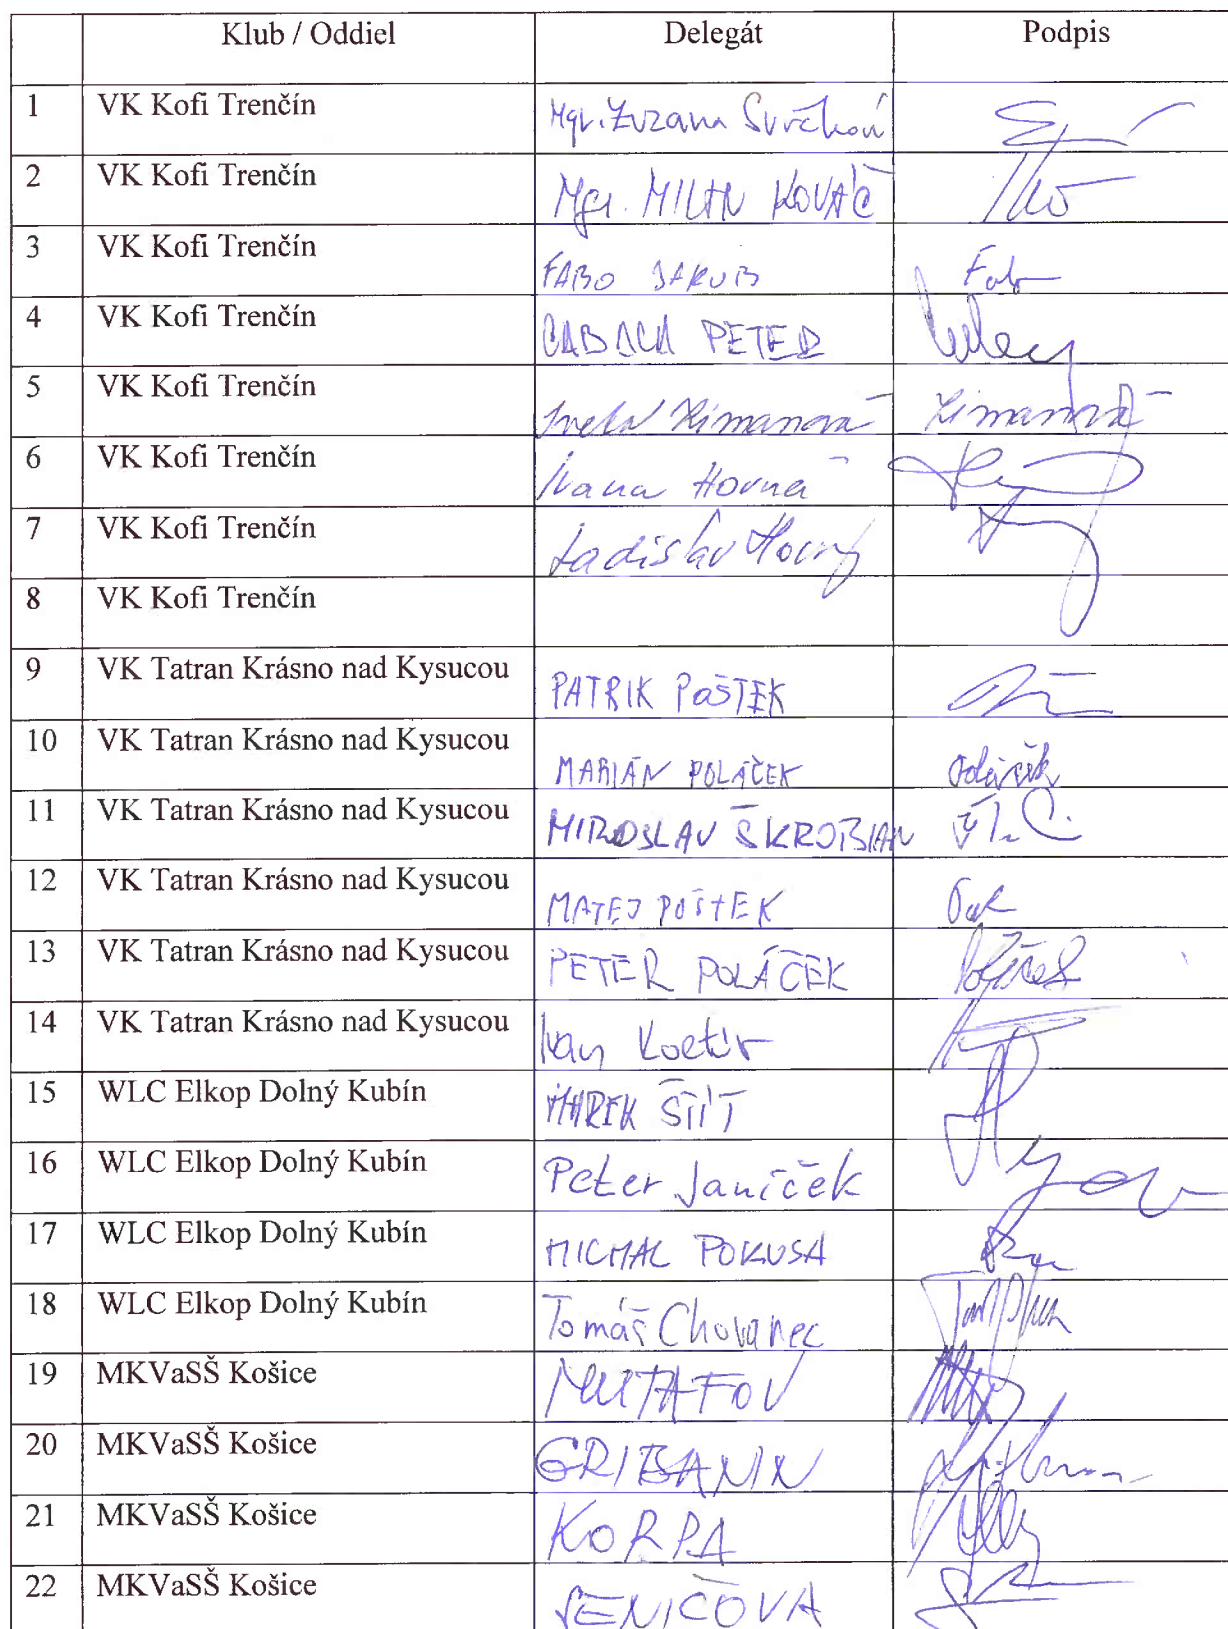 Klub / Oddiel Delegát Podpis
1 VK Kofi Trenčín Mgr. Zuzana Svrčková
2 VK Kofi Trenčín Mgr. MILAN KOVÁČ
3 VK Kofi Trenčín FABO JAKUB Fabo
4 VK Kofi Trenčín CABALA PETER
5 VK Kofi Trenčín Iveta Zimanová Zimanová
6 VK Kofi Trenčín Ivana Horná
7 VK Kofi Trenčín Ladislav Horný
8 VK Kofi Trenčín
9 VK Tatran Krásno nad Kysucou PATRIK POŠTEK
10 VK Tatran Krásno nad Kysucou MARIÁN POLÁČEK
11 VK Tatran Krásno nad Kysucou MIROSLAV ŠKROBIAN
12 VK Tatran Krásno nad Kysucou MATEJ POŠTEK
13 VK Tatran Krásno nad Kysucou PETER POLÁČEK Poláček
14 VK Tatran Krásno nad Kysucou Ivan
15 WLC Elkop Dolný Kubín MAREK ŠTÍT
16 WLC Elkop Dolný Kubín Peter Janíček
17 WLC Elkop Dolný Kubín MICHAL POKUSA
18 WLC Elkop Dolný Kubín Tomáš Chovanec
19 MKVaSŠ Košice MUTAFOV
20 MKVaSŠ Košice GRIBANIN
21 MKVaSŠ Košice KORPA
22 MKVaSŠ Košice SENIČOVÁ